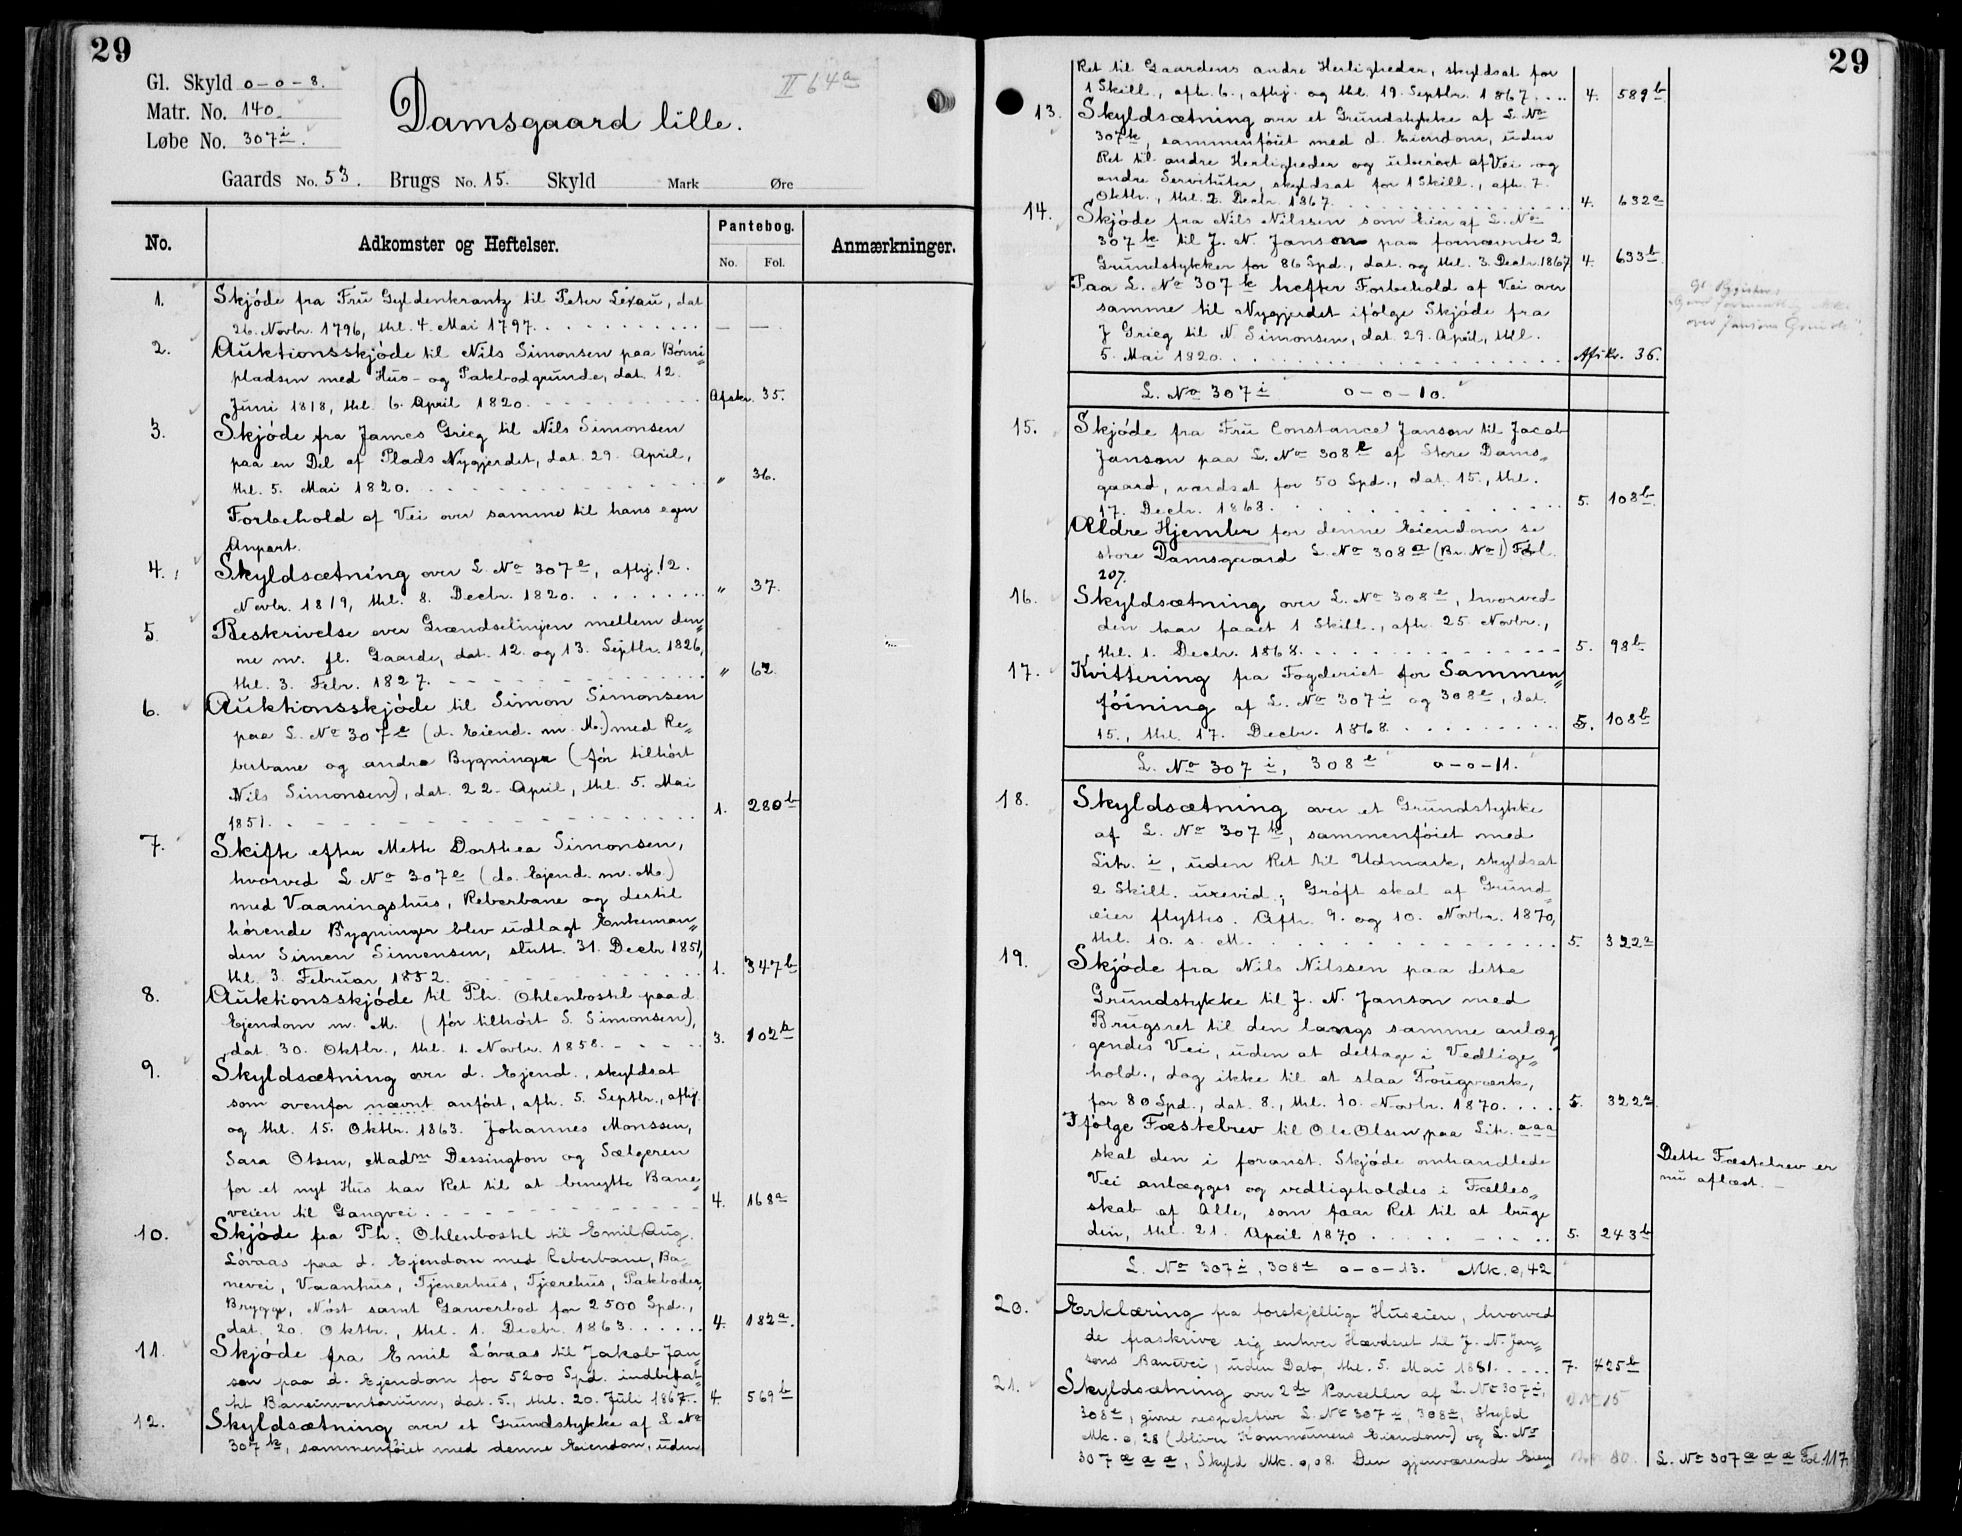 29
Gl. Skyld 0-0-8.
Matr. No. 140.
Løbe No. 307i.
II 64a
Damsgaard lille.
Gaards No. 53. Brugs No. 15. Skyld Mark Øre
No. Adkomster og Heftelser. Pantebog. Anmærkninger.
No. Fol.
1. Skjøde fra Fru Gyldenkrantz til Peter Lexau, dat
26. Novbr. 1796, thl. 4. Mai 1797. — —
2. Auktionsskjøde til Nils Simonsen paa Børni„
pladsen med Hus- og Pakbodgrunde, dat. 12.
Juni 1818, thl. 6. April 1820. Afskr. 35.
3. Skjøde fra James Grieg til Nils Simonsen
paa en Del af Plads Nygjerdet, dat. 29. April,
thl. 5. Mai 1820. „ 36.
Forbehold af Vei over samme til hans egen
Anpart.
4. Skyldsætning over L. No 307e, afhj. 12.
Novbr. 1819, thl. 8. Decbr. 1820. „ 37.
5. Beskrivelse over Grændselinjen mellem den„
ne m. fl. Gaarde, dat. 12. og 13. Septbr. 1826,
thl. 3. Febr. 1827. „ 62
6. Auktionsskjøde til Simon Simonsen
paa L. No 307e (d. Eiend. m. M.) med Re„
berbane og andre Bygninger (før tilhørt
Nils Simonsen), dat. 22. April, thl. 5. Mai
1851. 1. 280b
7. Skifte efter Mette Dorthea Simonsen,
hvorved L No 307e (d. Ejend. m. M.)
med Vaaningshus, Reberbane og dertil
hørende Bygninger blev udlagt Enkeman„
den Simen Simensen, slutt. 31. Decbr 1851,
thl. 3. Februar 1852. 1. 347b
8. Auktionsskjøde til Ph. Ohlenbostel paa d.
Ejendom m. M. (før tilhørt S. Simonsen),
dat. 30. Oktbr., thl. 1. Novbr. 1858. 3. 102a
9. Skyldsætning over d. Ejend., skyldsat
som ovenfor nævnt anført, afh. 5. Septbr., afhj.
og thl. 15. Oktbr. 1863. Johannes Monssen,
Sara Olsen, Madm Dessington og Sælgeren
for et nyt Hus har Ret til at benytte Bane„
veien til Gangvei. 4. 168a
10. Skjøde fra Ph. Ohlenbostel til Emil Aug.
Løvaas paa d. Ejendom med Reberbane, Ba„
nevei, Vaanhus, Tjenerhus, Tjærehus, Pakboder,
Brygge, Nøst samt Garverbod for 2500 Spd.,
dat. 20. Oktbr., thl. 1. Decbr. 1863. 4. 182a.
11. Skjøde fra Emil Løvaas til Jakob Jan„
son paa d. Ejendom for 5200 Spd. indbefat„
tet Baneinventarium, dat. 5., thl. 20. Juli 1867. 4. 569b
12. Skyldsætning over et Grundstykke af L. No
307k, sammenføiet med denne Eiendom, uden
29
Ret til Gaardens andre Herligheder, skyldsat for
1 Skill., afh. 6., afhj. og thl. 19. Septbr. 1867. 4. 589b
13. Skyldsætning over et Grundstykke af L. No
307k, sammenføiet med d. Eiendom, uden
Ret til andre Herligheder og uberørt af Vei og
andre Servituter, skyldsat for 1 Skill., afh. 7.
Oktbr., thl. 2. Decbr. 1867. 4. 632a
14. Skjøde fra Nils Nilssen som eier af L. No
307k til J. N. Janson paa fornævnte 2
Grundstykker for 86 Spd., dat. og thl. 3. Decbr. 1867 4. 633b
Paa L. No 307k hefter Forbehold af Vei over
samme til Nygjerdet ifølge Skjøde fra
J Grieg til N. Simonsen, dat. 29. April, thl.
5. Mai 1820. Afskr. 36.
over Jansons Grund
L. No 307i 0-0-10.
15. Skjøde fra Fru Constance Janson til Jacob
Janson paa L. No 308e af Store Dams„
gaard, værdsat for 50 Spd., dat. 15., thl.
17. Decbr. 1868. 5. 108b
Ældre Hjemler for denne Eiendom se
store Damsgaard L. No 308a (Br. No 1) Fol.
207.
16. Skyldsætning over L. No 308e, hvorved
den har faaet 1 Skill., afh. 25. Novbr.,
thl. 1. Decbr. 1868. 5. 98b
17. Kvittering fra Fogderiet for Sammen„
føining af L. No 307i og 308e, dat.
15., thl. 17. Decbr. 1868. 5. 108b
L. No 307i, 308e 0-0-11.
18. Skyldsætning over et Grundstykke
af L. No 307k, sammenføiet med
Litr. i, uden Ret til Udmark, skyldsat
2 Skill. urevid.; Grøft skal af Grund„
eier flyttes. Afh. 9. og 10. Novbr. 1870,
thl. 10. s. M. 5. 322a
19. Skjøde fra Nils Nilssen paa dette
Grundstykke til J. N. Janson med
Brugsret til den langs samme anlæg„
gendes Vei, uden at deltage i Vedlige„
hold., dog ikke til at slaa Tougværk,
for 80 Spd., dat. 8., thl. 10. Novbr. 1870. 5. 322a
Ifølge Fæstebrev til Ole Olsen paa Litr. aaa
skal den i foranst. Skjøde omhandlede
Vei anlægges og vedligeholdes i Fælles„
skab af Alle, som faar Ret til at bruge
den, thl. 21. April 1870. 5. 243b
Dette Fæstebrev er
nu aflæst. —
L. No 307i, 308e 0-0-13. Mk. 0,42
20. Erklæring fra forskjellige Huseiere, hvorved
de fraskrive sig enhver Hævdsret til J. N. Jan„
sons Banevei, uden Dato, thl. 5. Mai 1881. 7. 425b
21. Skyldsætning over 2de Parceller af L. No 307i,
308e, givne respektive L. No 307æ, 308æ, Skyld
Mk. 0,28 (bliver Kommunens Eiendom) og L. No
307æææ, Skyld Mk. 0,08. Den gjenværende Eien„ L. No 307æææ Fol. 117.